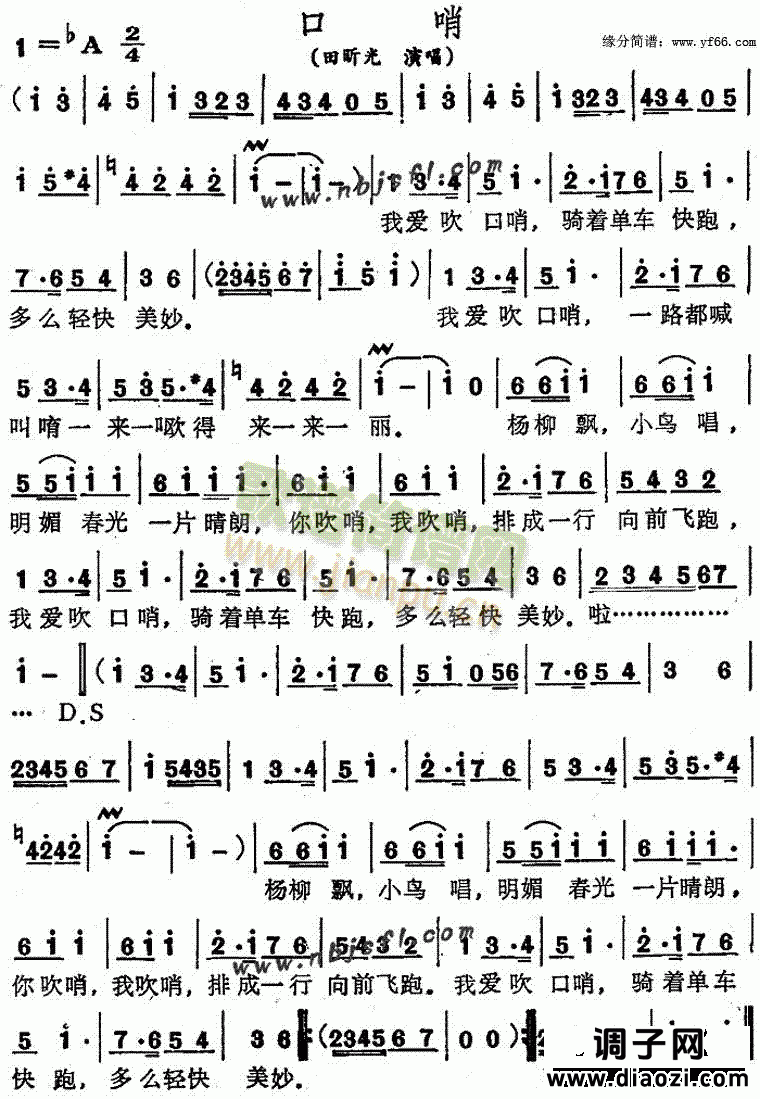 口 哨
1=♭A 2/4
(田昕光 演唱)
缘分简谱:www.yf66.com
(i 3 | 4 5 | i 323 | 43405 | i 3 | 4 5 | i 323 | 43405 |
i 5 #4 | ♮4 2 4 2 | i - | i - ) | 1 3·4 | 5 i· | 2·i76 | 5 i· |
www.nbjsfl.com
我爱吹 口哨, 骑着单车 快跑,
7·654 | 3 6 | (234567 | i 5 i ) | 1 3·4 | 5 i· | 2·i76 |
多么轻快 美妙。 我爱吹 口哨, 一路都喊
5 3·4 | 5 3 5·#4 | ♮4 2 4 2 | i - | i 0 | 6 6 i i | 6 6 i i |
叫唷一 来一呕得 来一来一 丽。 杨柳 飘, 小鸟 唱,
5 5 i i i | 6 i i i· | 6 i i | 6 i i | 2·i76 | 5 4 3 2 |
明媚 春光 一片晴朗, 你吹哨, 我吹哨, 排成一行 向前飞跑,
歌谱简谱网
www.jianpu.cn
1 3·4 | 5 i· | 2·i76 | 5 i· | 7·654 | 3 6 | 2 3 4 567 |
我爱吹 口哨, 骑着单车 快跑, 多么轻快 美妙。 啦……………
i - ‖ (i 3·4 | 5 i· | 2·i76 | 5 i 0 56 | 7·654 | 3 6 |
… D.S
2345 6 7 | i 5435 | 1 3·4 | 5 i· | 2·i76 | 5 3·4 | 5 3 5·#4 |
♮4242 | i - | i - ) | 6 6 i i | 6 6 i i | 5 5 i i i | 6 i i i· |
杨柳 飘, 小鸟 唱, 明媚 春光 一片晴朗,
6 i i | 6 i i | 2·i76 | 5 4 3 2 | 1 3·4 | 5 i· | 2·i76 |
www.nbjsfl.com
你吹哨, 我吹哨, 排成一行 向前飞跑。 我爱吹 口哨, 骑着单车
5 i· | 7·654 | 3 6 (2345 6 7 | 0 0 )
快 跑, 多么轻快 美妙。
调子网
www.diaozi.com